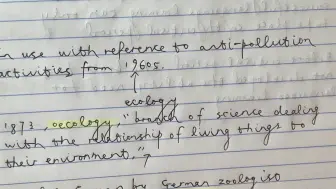 in use with reference to anti-pollution
activities from 1960s.
ecology
1873, oecology, "branch of science dealing
with the relationship of living things to
their environment,"
by German zoologist